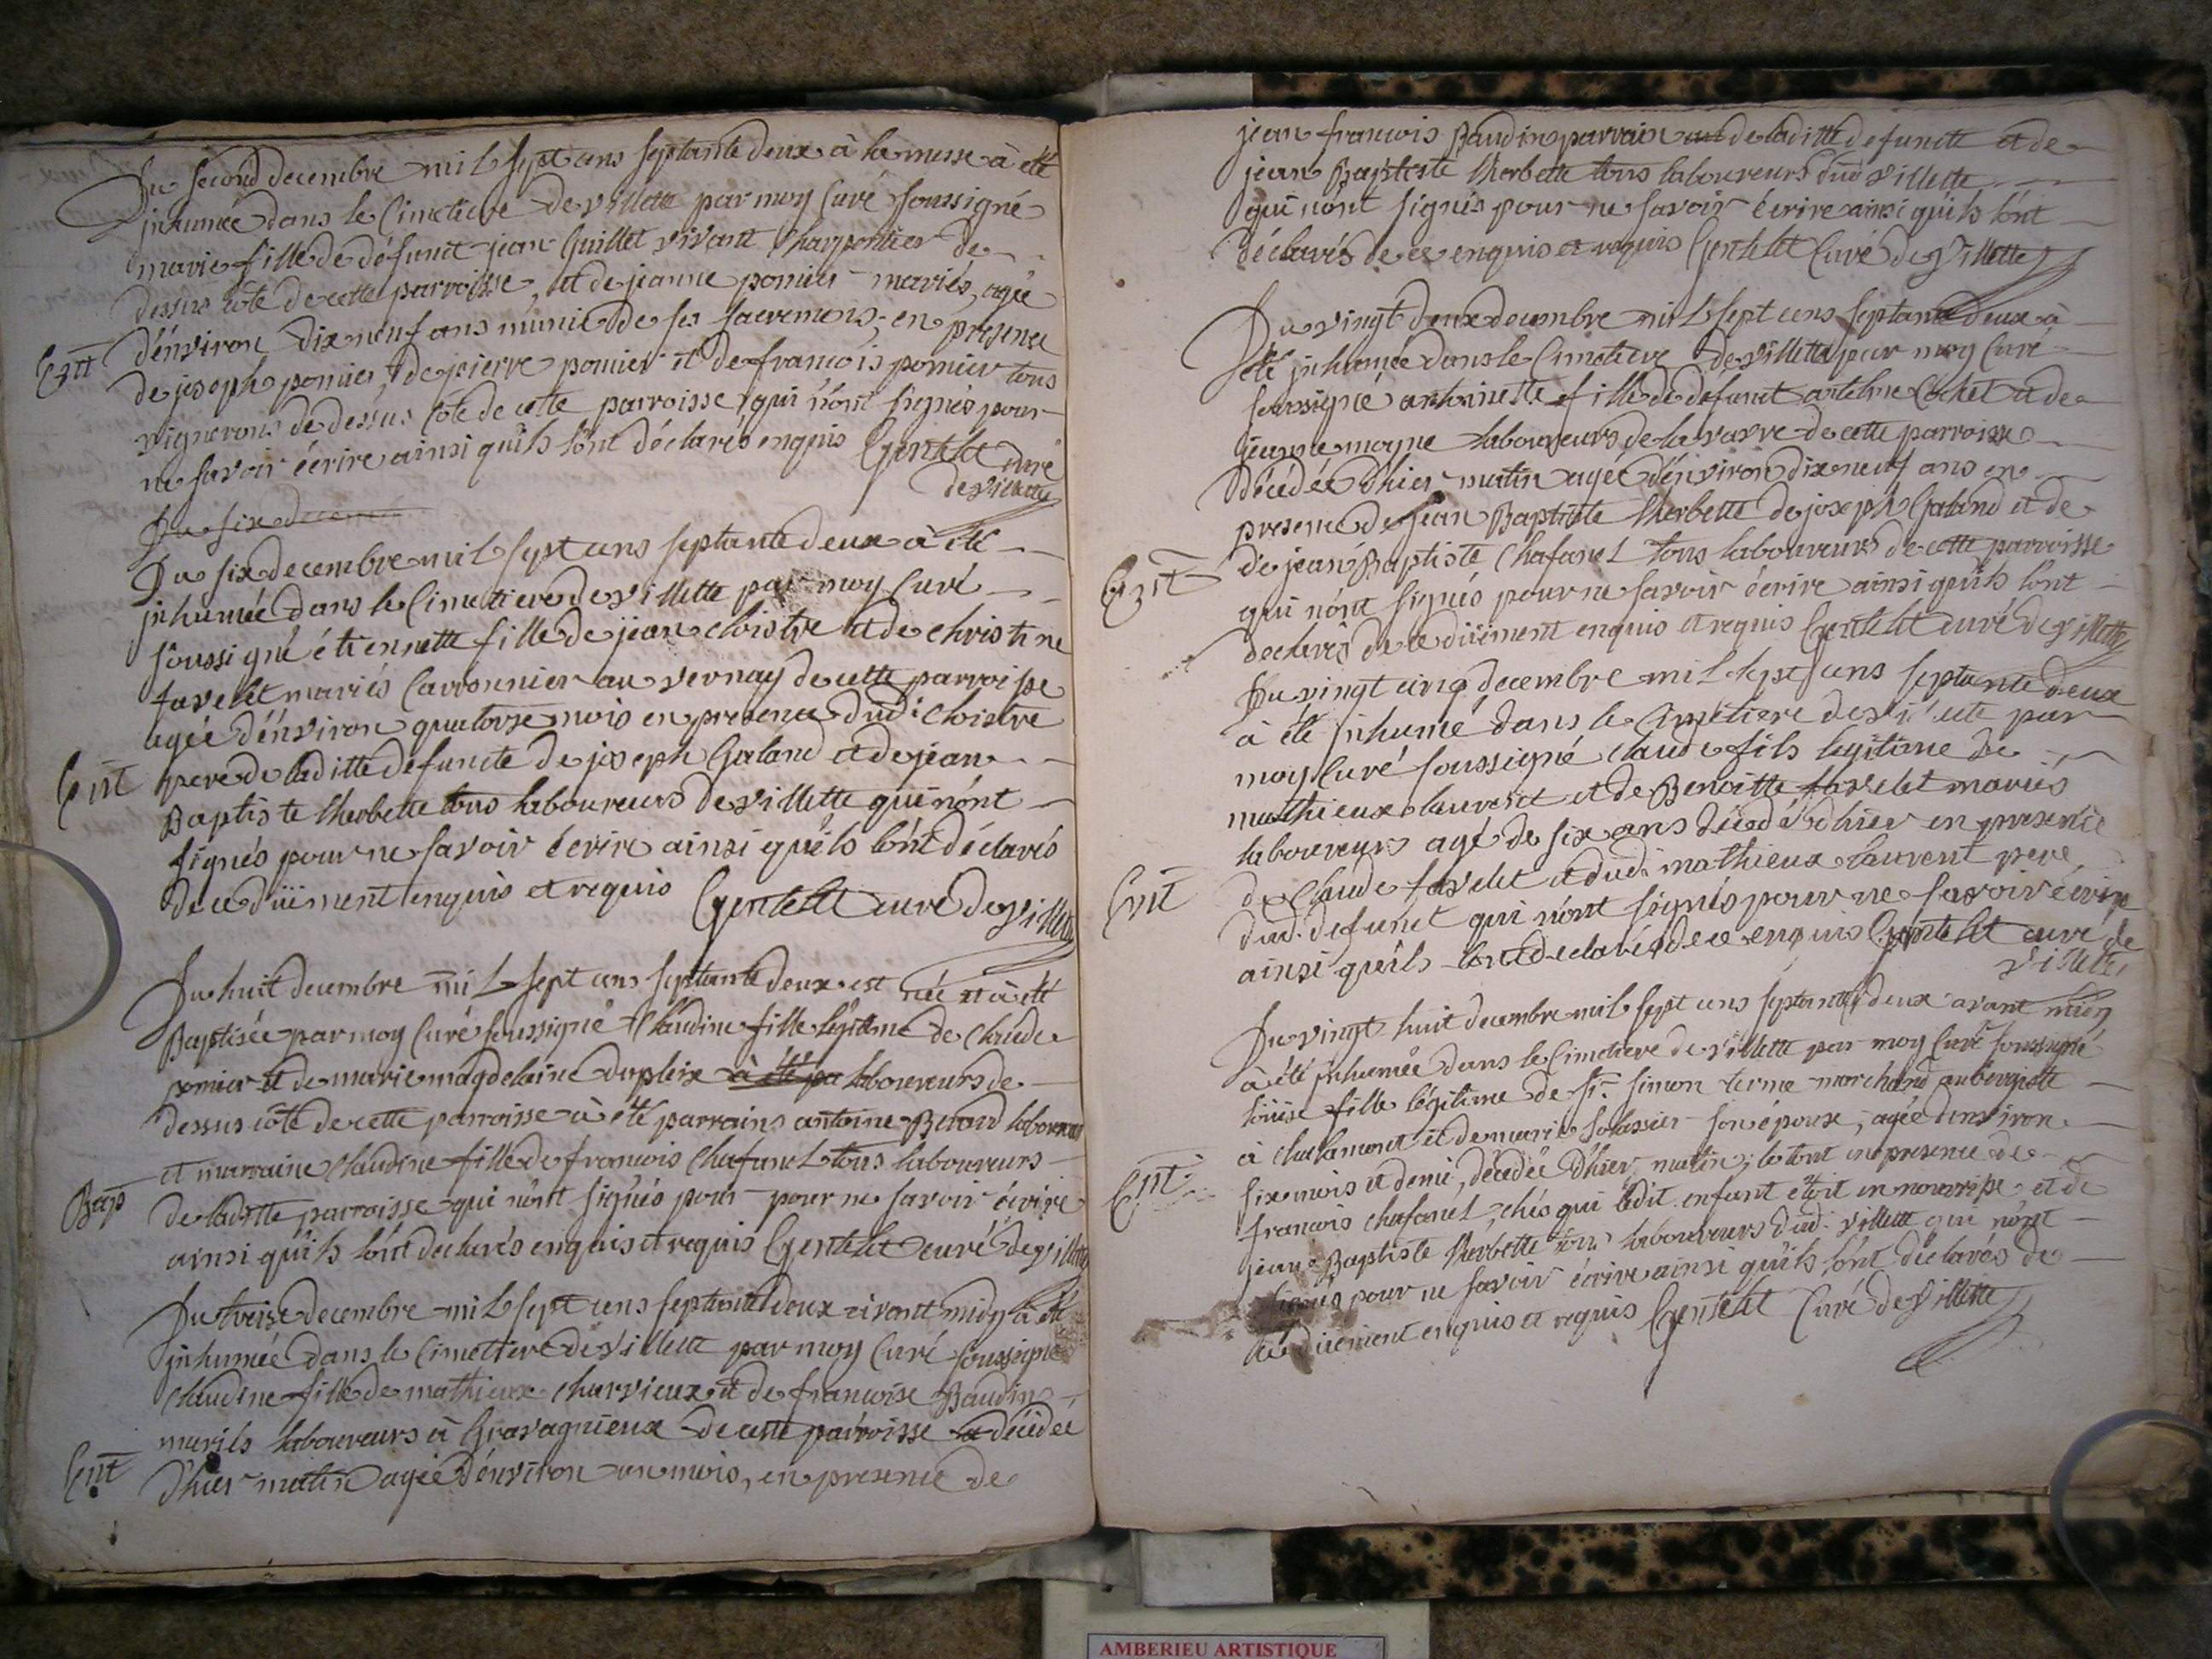 Du second decembre mil sept cens septante deux à la messe à eté
inhumée dans le Cimetiere de Villette par moy Curé soussigné
marie fille de défunct jean Guillet vivant Charpentier de
dessus côte de cette parroisse, et de jeanne pomier mariés, agée
d'énviron dix neuf ans munie de ses sacremens, en presence
Ent
de joseph pomier, de pierre pomier et de francois pomier tous
vignerons de dessus côte de cette parroisse qui n'ont signés pour
ne savoir écrire ainsi qu'ils l'ont déclarés enquis Gentelet curé
de Villette
Du six decem
Du six decembre mil sept cens septante deux à été
inhumée dans le Cimetiere de Villette par moy Curé
soussigné étiennette fille de jean cloistre et de christine
favelet mariés Carronnier au vernay de cette parroisse
agée d'énviron quatorse mois en presence dud: cloistre
Ent
pere de laditte defuncte de joseph Galand et de jean
Baptiste Lherbette tous laboureurs de Villette qui n'ont
signés pour ne savoir écrire ainsi qu'ils l'ont déclarés
de ce düement enquis et requis Gentelet curé de Villette
Du huit decembre mil sept cens septante deux est née et à été
Baptisée par moy Curé soussigné Claudine fille légitime de Claude
pomier et de marie magdelaine dupleix à été pa laboureurs de
dessus côte de cette parroisse à été parrains antoine Beraud laboureur
et marraine Claudine fille de francois Chafanel tous laboureurs
Bap
de laditte parroisse qui n'ont signés pour pour ne savoir écrire
ainsi qu'ils l'ont declarés enquis et requis Gentelet curé de Villette
Du treise decembre mil sept cens septante deux avant midy à été
inhumée dans le Cimettiere de Villette par moy Curé soussigné
Claudine fille de mathieux charvieux et de francoise Baudin
mariés laboureurs à Gravagnieux de cette parroisse décédée
Ent
d'hier matin agée d'énviron un mois, en presence de
jean francois Baudin parrain de laditte defuncte et de
jean Baptiste Lherbette tous laboureurs dud Villette
qui n'ont signés pour ne savoir écrire ainsi qu'ils l'ont
déclarés de ce enquis et requis Gentelet Curé de Villette
Du vingt deux decembre mil sept cens septante deux à
été inhumée dans le Cimetiere de Villette par moy Curé
soussigné antoinette fille de defunct antelme Cochet et de
jeanne moyne laboureurs de la vavre de cette parroisse
décédée d'hier matin agée d'énviron dix neuf ans en
presence de jean Baptiste Lherbette de joseph Galand et de
Ent
de jean Baptiste Chafanel tous laboureurs de cette parroisse
qui n'ont signés pour ne savoir écrire ainsi qu'ils l'ont
declarés de ce düement enquis et requis Gentelet curé de Villette
Du vingt cinq decembre mil sept cens septante deux
à été inhumé dans le Cimetiere de Villette par
moy Curé soussigné Claude fils legitime de
matthieux laurent et de Benoitte favelet mariés
laboureurs agé de six ans décédé d'hier en presence
Ent
de Claude favelet et dud: mathieux laurent pere
dud. defunct qui n'ont signés pour ne savoir écrire
ainsi qu'ils l'ont declarés de ce enquis Gentelet curé de
Villette
Du vingt huit decembre mil sept cens septante deux avant midy
à été inhumée dans le Cimetiere de Villette par moy Curé soussigné
loüise fille légitime de sr. simon terme marchand aubergiste
à chalamont et de marie solassier son épouse, agée d'énviron
Ent
six mois et demi, décédée d'hier matin, le tout en presence de
francois chafanel, chés qui ledit enfant étoit en nourrisse, et de
jean Baptiste Lherbette tous laboureurs dud: Villette qui n'ont
signés pour ne savoir écrire ainsi qu'ils l'ont déclarés de
ce düement enquis et requis Gentelet Curé de Villette
AMBERIEU ARTISTIQUE